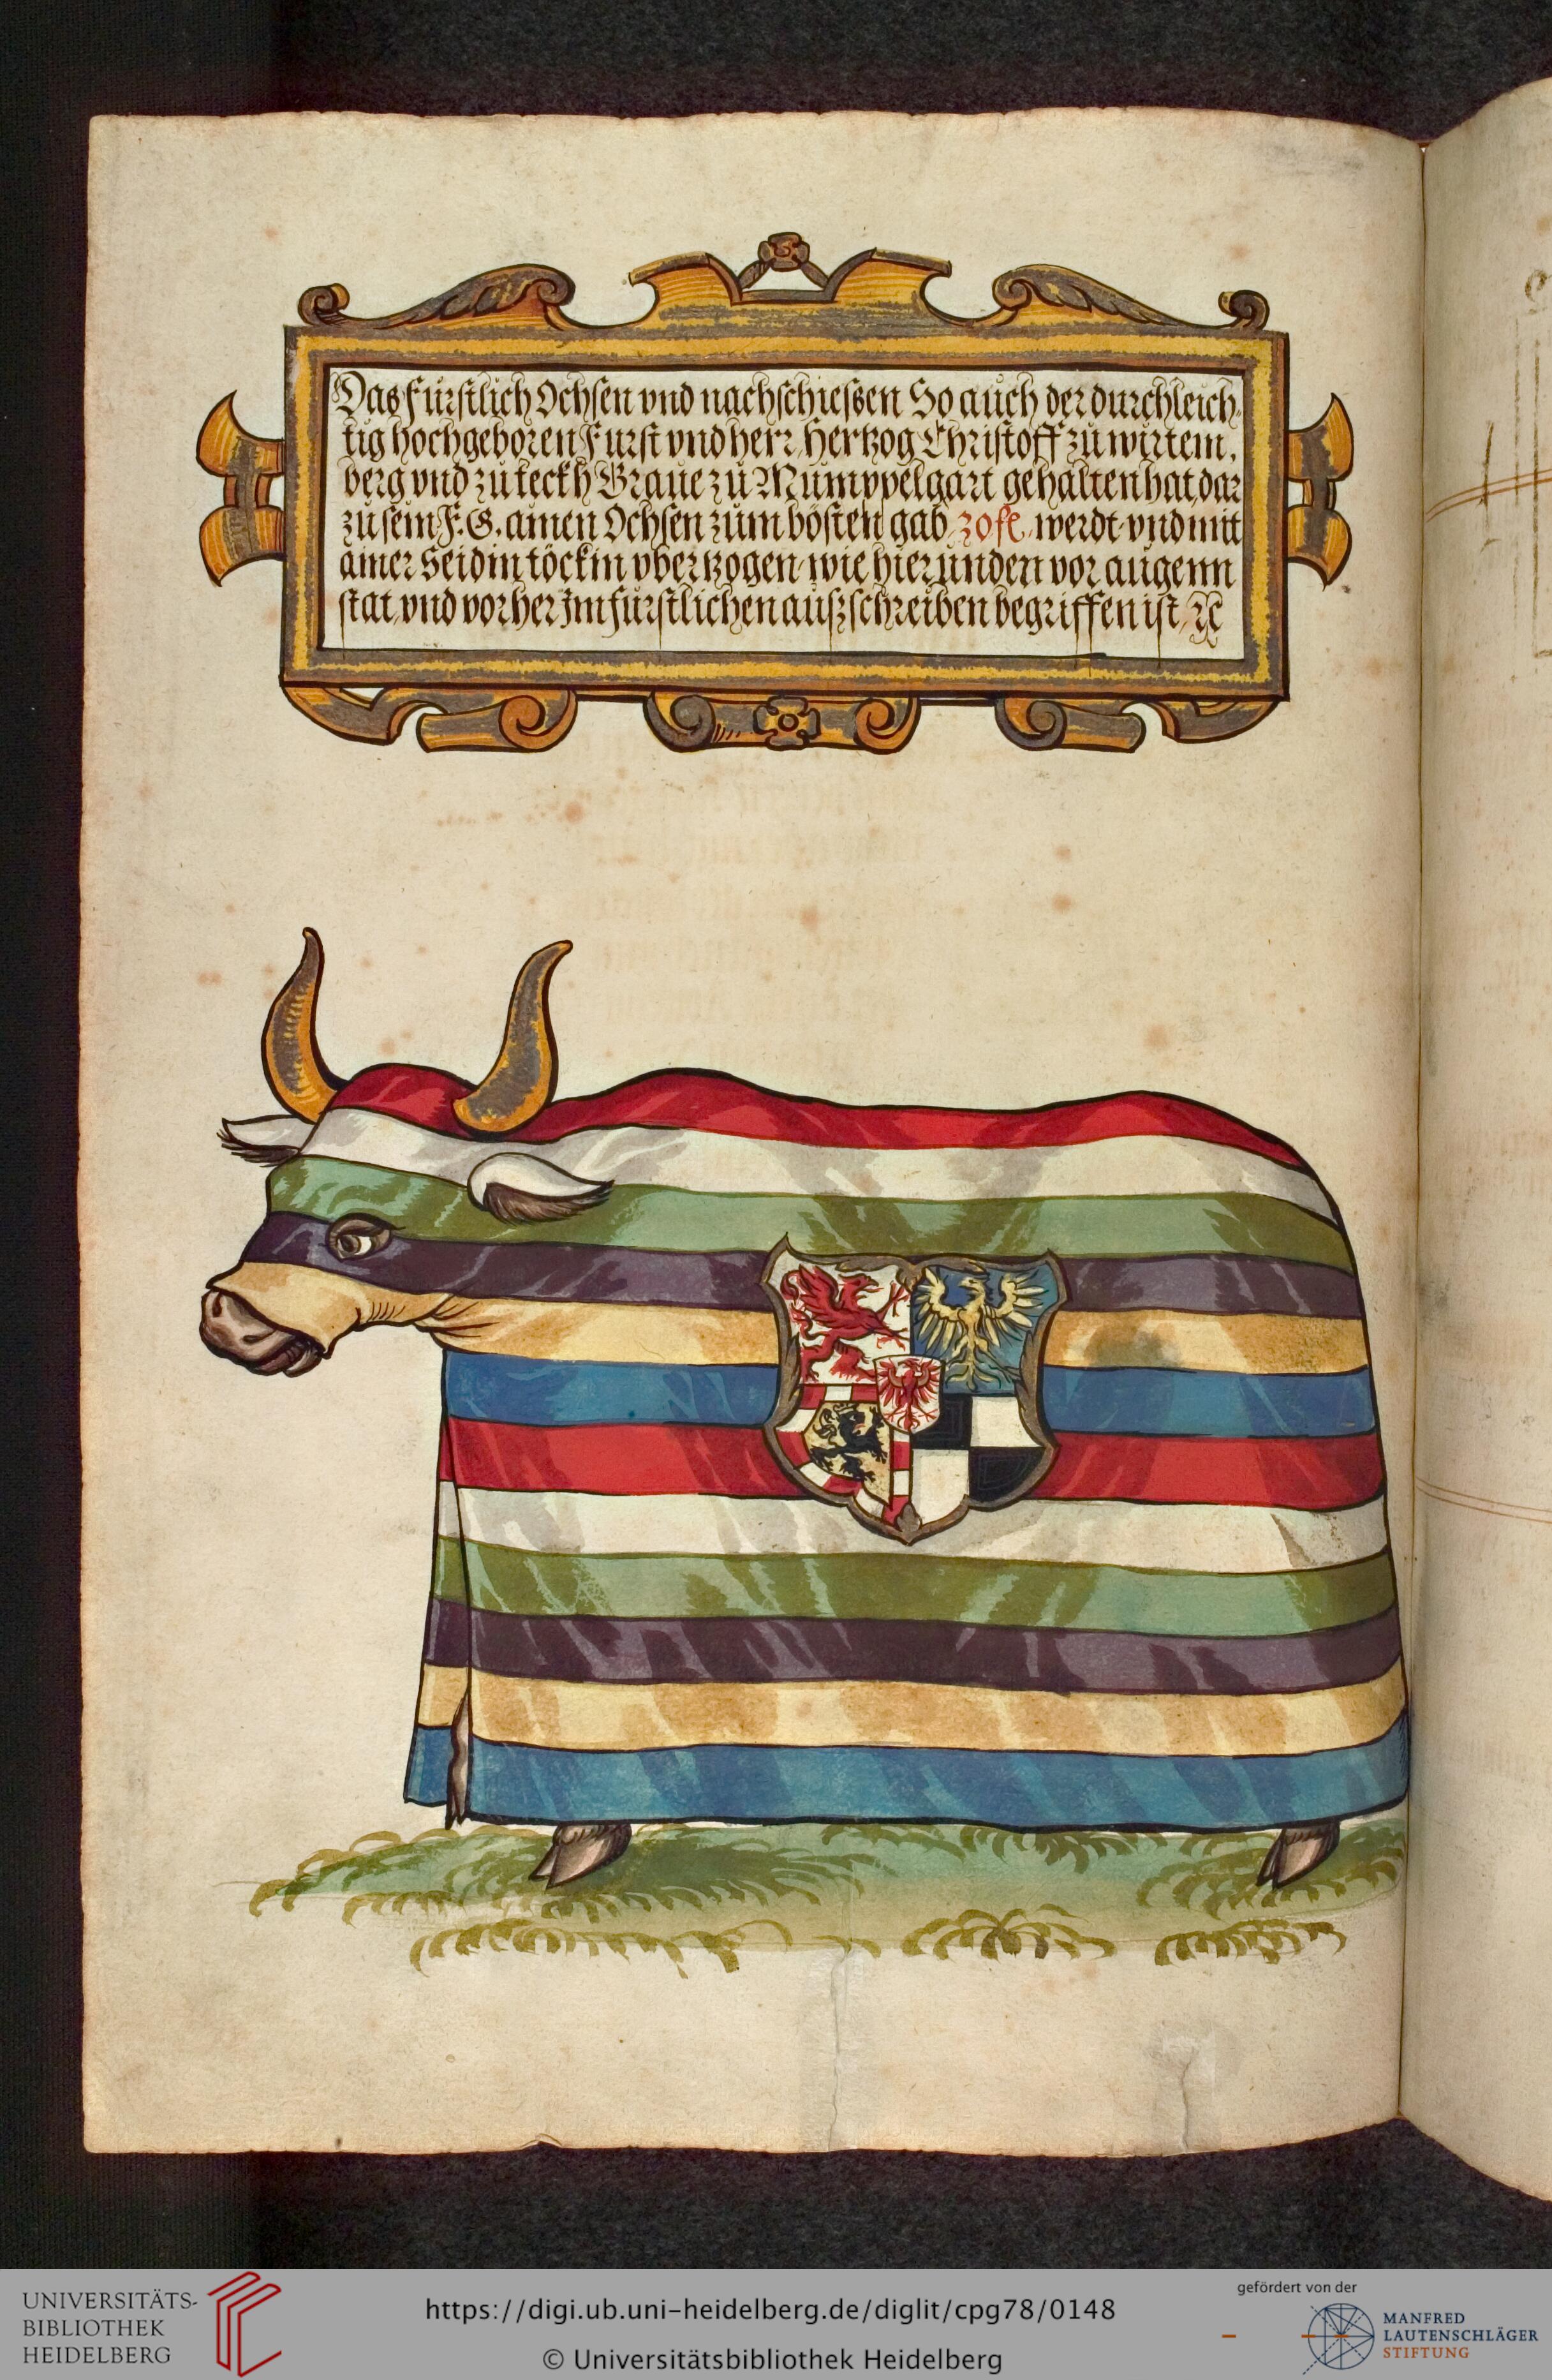 Das Fürstlich Ochsen vnd nachschiessen So auch der durchleich,
tig hochgeboren Furst vnd herr, Hertzog Christoff zů wirtem,
berg vnd zů teckh Graue zů Mümppelgart gehalten hat, dar
zů sein F. G. ainen Ochsen zům bösten gab, 20 fl. werdt, vnd mit
ainer Seidin töckin vbertzogen, wie hier ůnden vor augenn
stat, vnd vorher Im fürstlichen außschreiben begriffen ist, ꝛc
UNIVERSITÄTS-
BIBLIOTHEK
HEIDELBERG
https://digi.ub.uni-heidelberg.de/diglit/cpg78/0148
© Universitätsbibliothek Heidelberg
gefördert von der
MANFRED
LAUTENSCHLÄGER
STIFTUNG